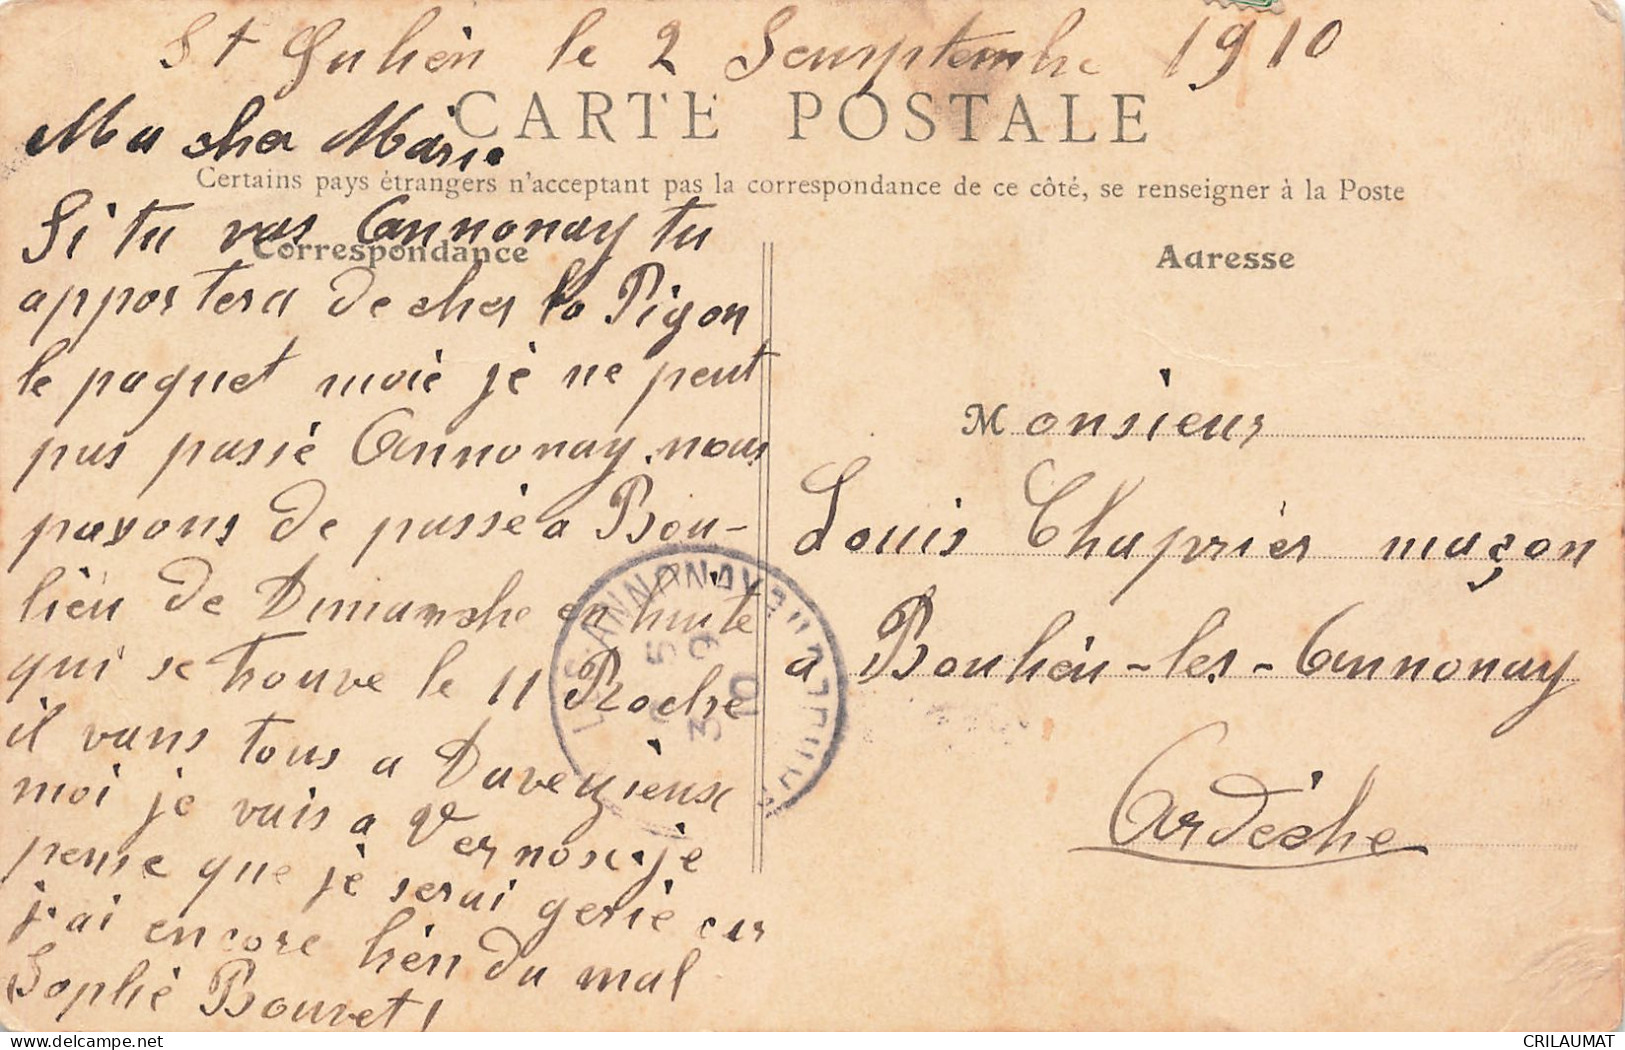 St Gulien le 2 Seunptembre 1910
CARTE POSTALE
Ma cher Marie
Certains pays étrangers n'acceptent pas la correspondance de ce côté, se renseigner à la Poste
Si tu vas Annonay tu
Correspondance
apportera de cher la Pigon
le paquet moie je ne peut
pas pasié Annonay. nous
pasons de passé a Bou-
lieu de Dimanche en huite
qui se trouve le 11 Proche
il vans tous a Davezieux
moi je vais a Vernosc. je
pense que je serai gerie car
j'ai encore bien du mal
Sophie Bouvet
Adresse
Monsieur
Louis Chaprier maçon
a Boulieu-les-Annonay
Ardèche
ANNONAY
3 9 10
CRILAUMAT